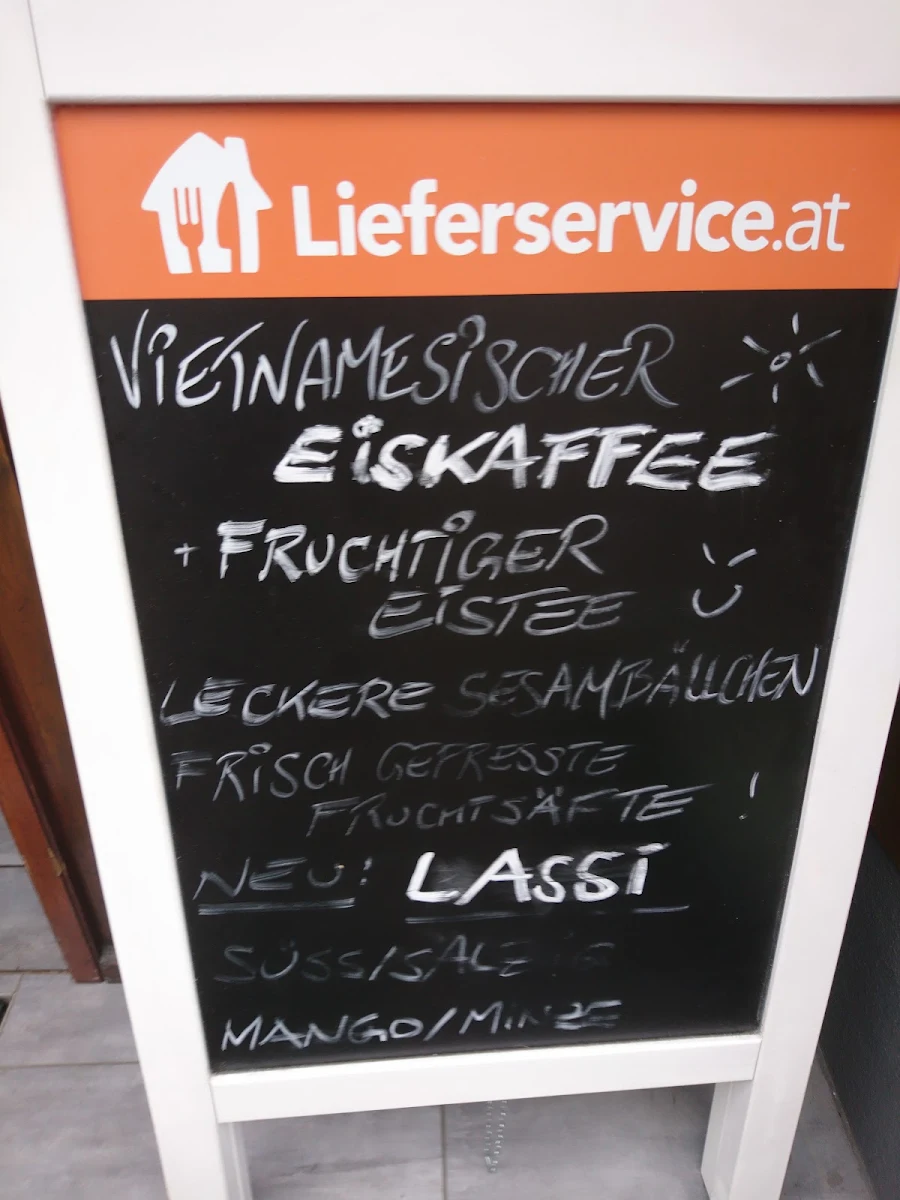 Lieferservice.at
VIETNAMESISCHER
EISKAFFEE
+ FRUCHTIGER
EISTEE
LECKERE SESAMBÄLLCHEN
FRISCH GEPRESSTE
FRUCHTSÄFTE !
NEU! LASSI
SÜSS/SALZIG
MANGO/MINZE